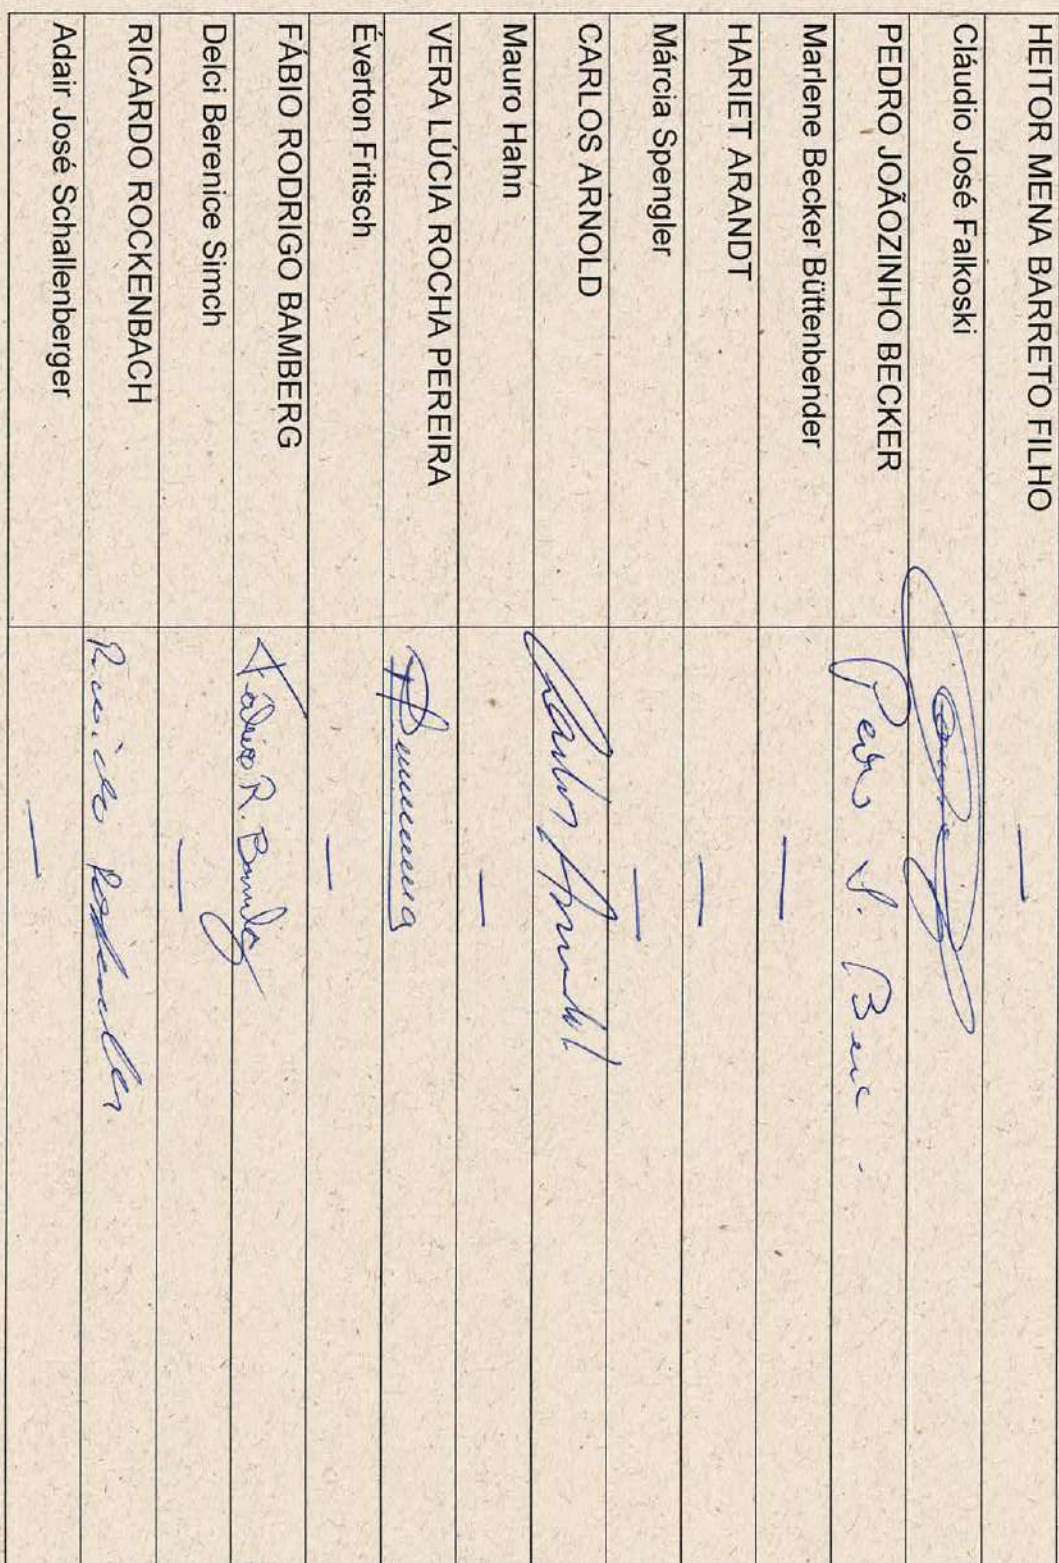 HEITOR MENA BARRETO FILHO —
Cláudio José Falkoski
PEDRO JOÃOZINHO BECKER Pedro J.
Marlene Becker Büttenbender —
HARIET ARANDT —
Márcia Spengler —
CARLOS ARNOLD Carlos Arnold
Mauro Hahn —
VERA LÚCIA ROCHA PEREIRA
Éverton Fritsch —
FÁBIO RODRIGO BAMBERG Fábio R. Bamberg
Delci Berenice Simch —
RICARDO ROCKENBACH Ricardo Rockenbach
Adair José Schallenberger —